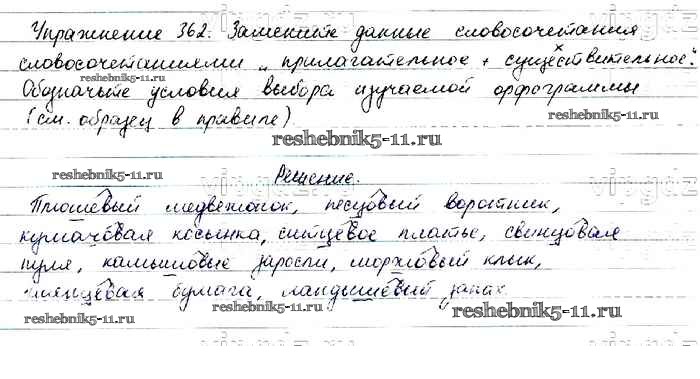 Упражнение 362. Замените данные словосочетания
словосочетаниями „прилагательное + существительное".
Обозначьте условия выбора изучаемой орфограммы
(см. образец в правиле).
Решение.
Плюшевый медвежонок, песцовый воротник,
кумачовая косынка, ситцевое платье, свинцовая
пуля, камышовые заросли, моржовый клык,
глянцевая бумага, ландышевый запах.
reshebnik5-11.ru
reshebnik5-11.ru
reshebnik5-11.ru
reshebnik5-11.ru
reshebnik5-11.ru
reshebnik5-11.ru